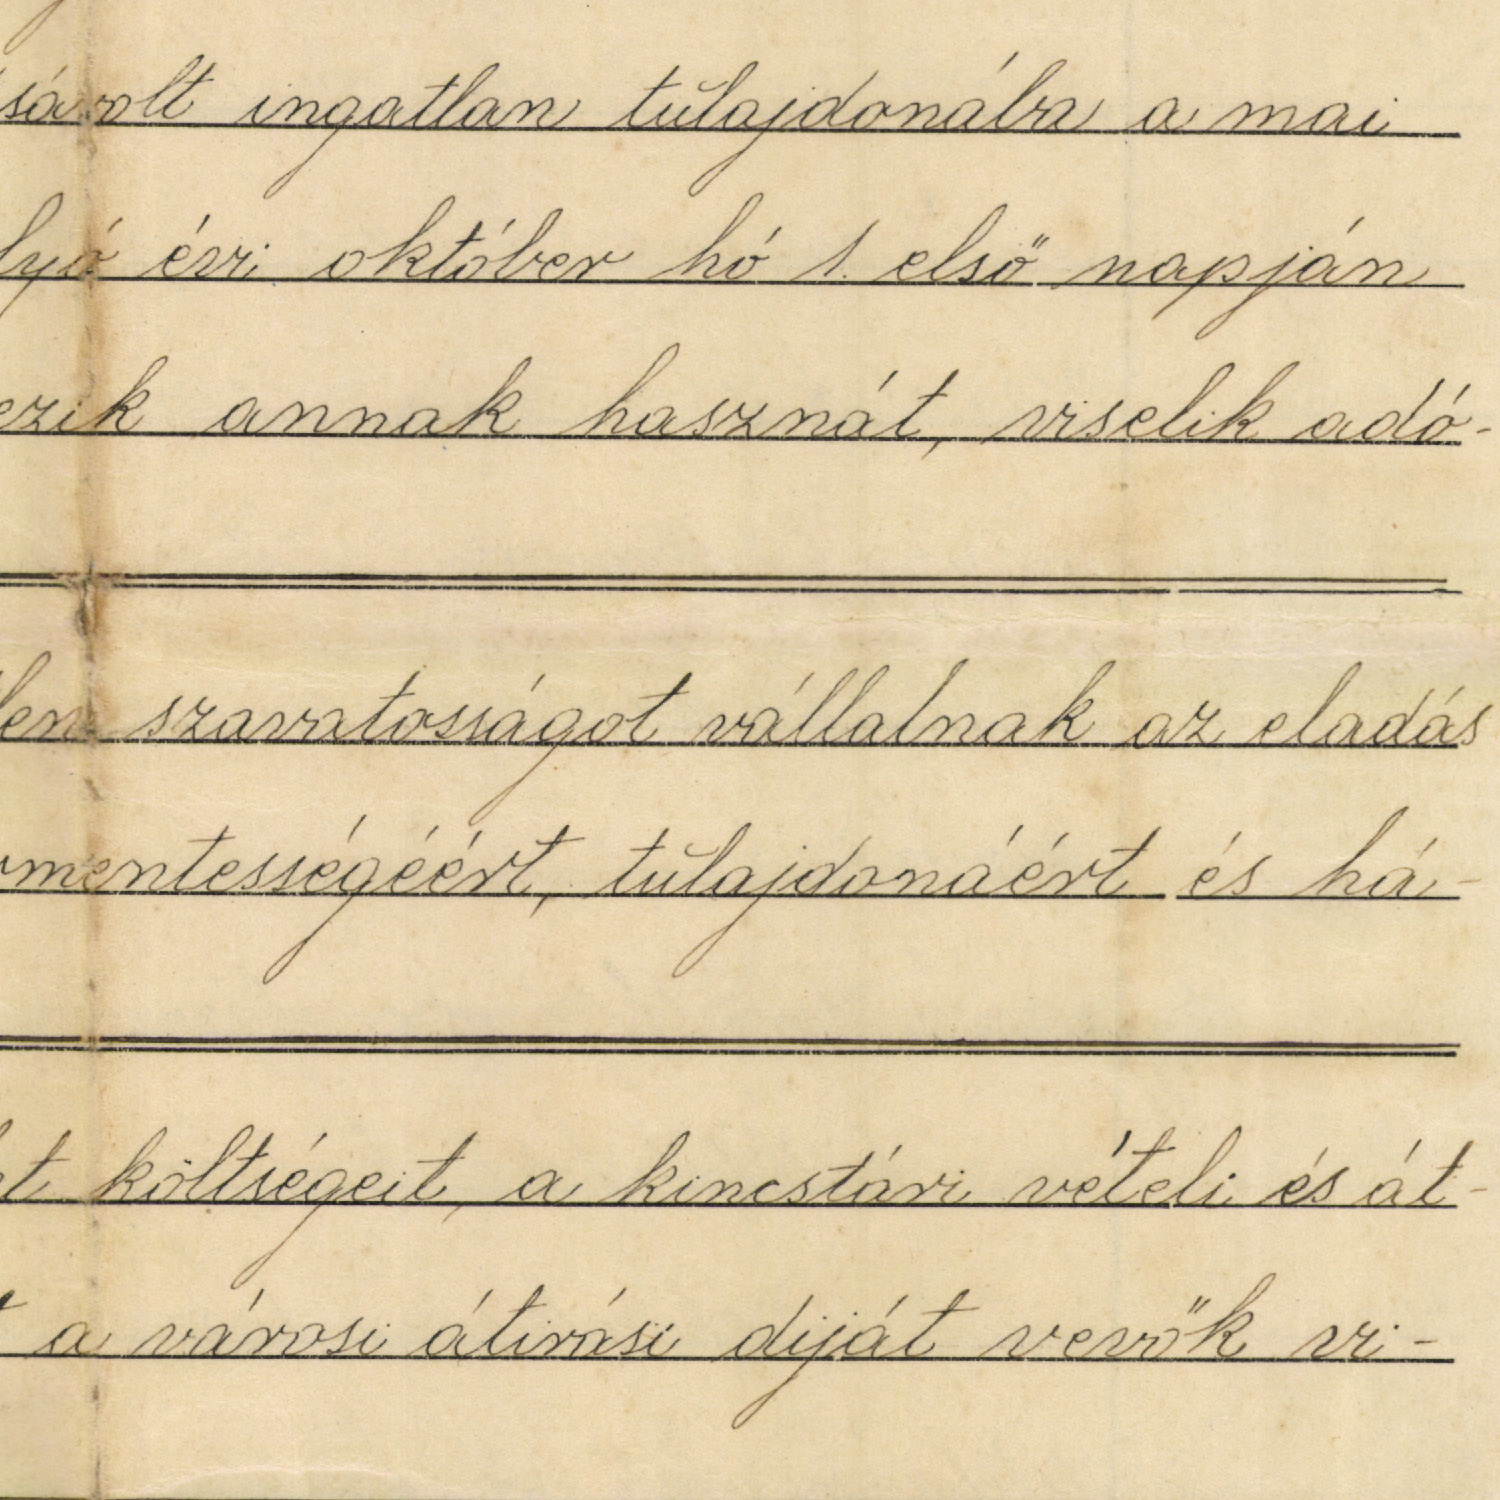 sárolt ingatlan tulajdonába a mai
lyó évi október hó 1. első napján
ezik annak hasznát, viselik adó-
len szavatosságot vállalnak az eladás
rmentességéért, tulajdonáért és há-
et költségeit, a kincstári vételi és át-
a városi átirási diját vevők vi-